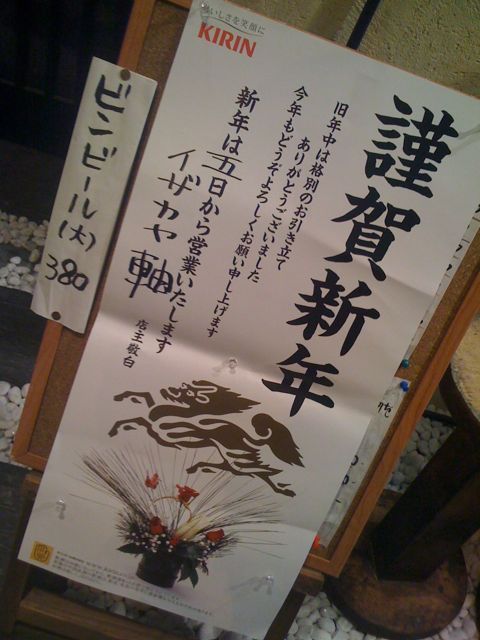 おいしさを笑顔に
KIRIN
謹賀新年
旧年中は格別のお引き立て
ありがとうございました
今年もどうぞよろしくお願い申し上げます
新年は五日から営業いたします
イザカヤ 軸
店主敬白
ビンビール(大)
380